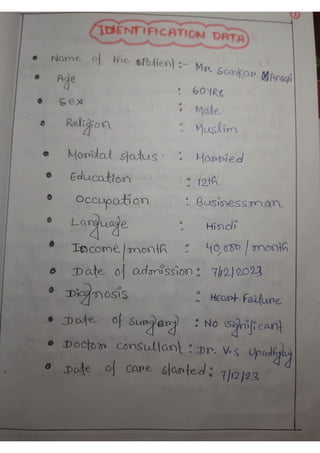 IDENTIFICATION DATA
• Name of the Patient :- Mr. Sarkar Ansari
• Age : 60 yrs
• Sex : Male
• Religion : Muslim
• Marital status : Married
• Education : 12th
• Occupation : Businessman
• Language : Hindi
• Income/month : 40,000/month
• Date of admission : 7/12/2023
• Diagnosis : Heart Failure
• Date of Surgery : No significant
• Doctor consultant : Dr. V.S Upadhyay
• Date of care started : 7/12/23